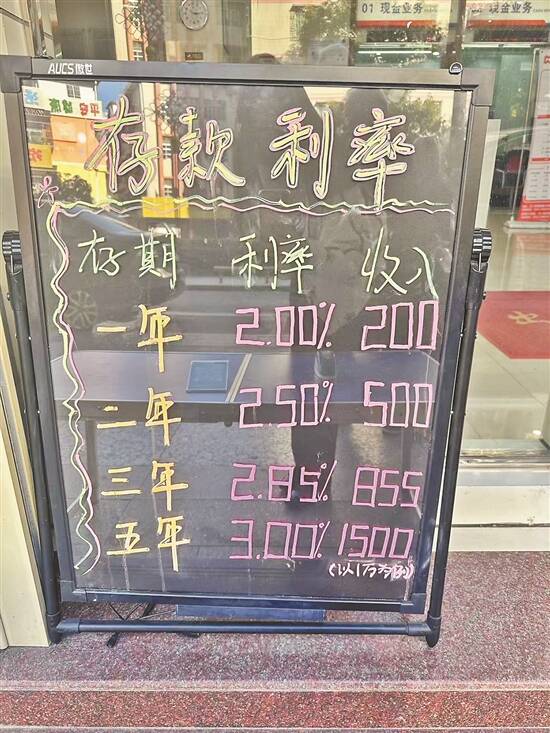 01 现金业务
现金业务
AUCS傲世
存款利率
存期 利率 收入
一年 2.00% 200
二年 2.50% 500
三年 2.85% 855
五年 3.00% 1500
(以1万为例)